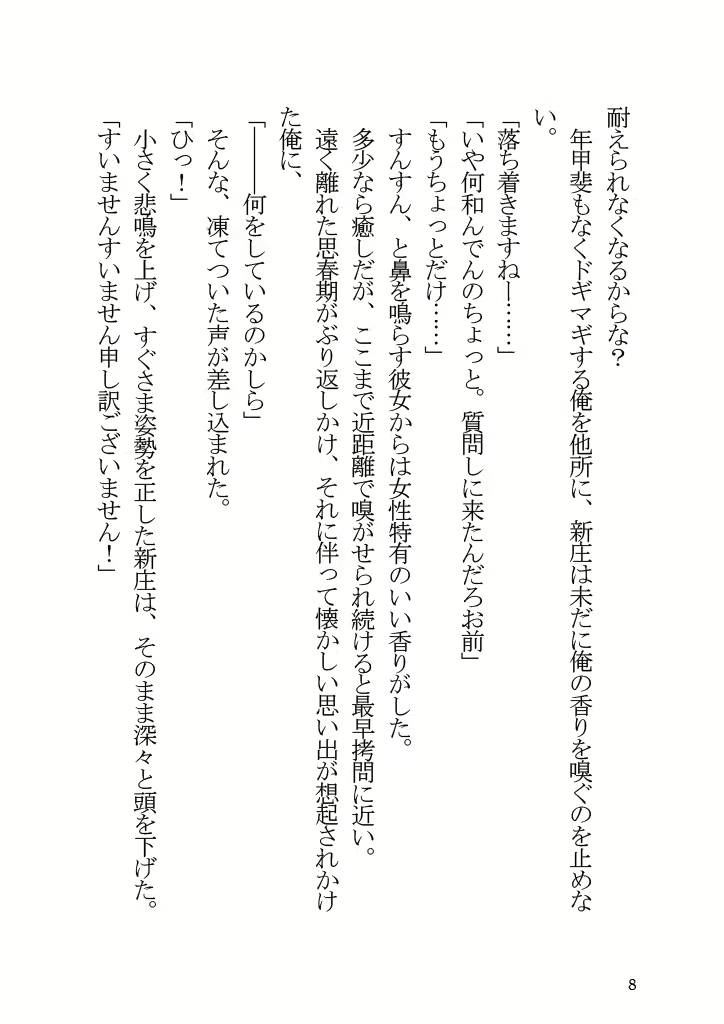 耐えられなくなるからな？
　年甲斐もなくドギマギする俺を他所に、新庄は未だに俺の香りを嗅ぐのを止めな
い。
「落ち着きますねー……」
「いや何和んでんのちょっと。質問しに来たんだろお前」
「もうちょっとだけ……」
　すんすん、と鼻を鳴らす彼女からは女性特有のいい香りがした。
　多少なら癒しだが、ここまで近距離で嗅がせられ続けると最早拷問に近い。
　遠く離れた思春期がぶり返しかけ、それに伴って懐かしい思い出が想起されかけ
た俺に、
「――何をしているのかしら」
　そんな、凍てついた声が差し込まれた。
「ひっ！」
　小さく悲鳴を上げ、すぐさま姿勢を正した新庄は、そのまま深々と頭を下げた。
「すいませんすいません申し訳ございません！」
8